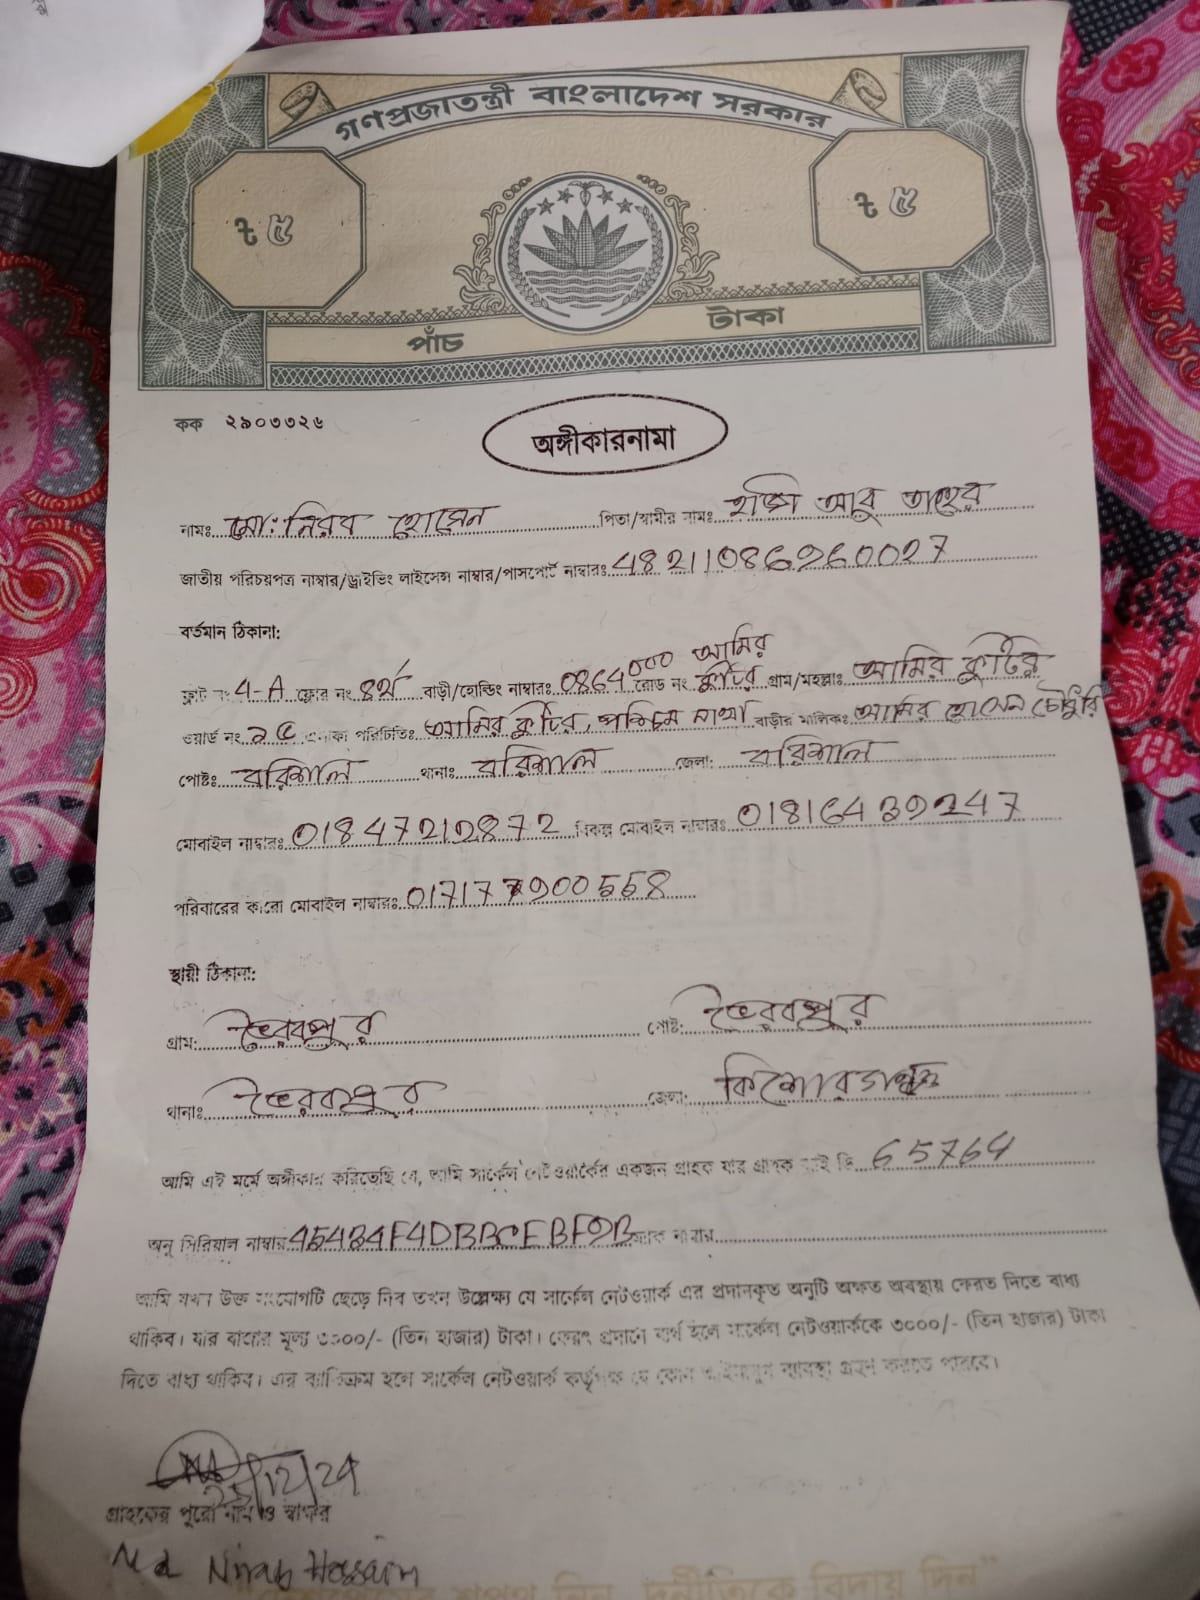 গণপ্রজাতন্ত্রী বাংলাদেশ সরকার
৳ ৫
৳ ৫
পাঁচ টাকা
কক ২৯০৩৩২৬
অঙ্গীকারনামা
নামঃ মো: নিরব হোসেন পিতা/স্বামীর নামঃ হাজি আবু তাহের
জাতীয় পরিচয়পত্র নাম্বার/ড্রাইভিং লাইসেন্স নাম্বার/পাসপোর্ট নাম্বারঃ 48211086260027
বর্তমান ঠিকানা:
ফ্লাট নং 4-A ফ্লোর নং ৪র্থ বাড়ী/হোল্ডিং নাম্বারঃ 0864000 রোড নং আমির কুটির গ্রাম/মহল্লাঃ আমির কুটির
ওয়ার্ড নং ১৫ এলাকা পরিচিতিঃ আমির কুটির, পশ্চিম মাথা বাড়ীর মালিকঃ আমির হোসেন চৌধুরি
পোষ্টঃ বরিশাল থানাঃ বরিশাল জেলা: বরিশাল
মোবাইল নাম্বারঃ 01847212872 বিকল্প মোবাইল নাম্বারঃ 01816439247
পরিবারের কারো মোবাইল নাম্বারঃ 01717900558
স্থায়ী ঠিকানা:
গ্রাম: ভৈরবপুর পোষ্ট: ভৈরবপুর
থানাঃ ভৈরবপুর জেলা: কিশোরগঞ্জ
আমি এই মর্মে অঙ্গীকার করিতেছি যে, আমি সার্কেল নেটওয়ার্কের একজন গ্রাহক যার গ্রাহক আই ডি 65764
অনু সিরিয়াল নাম্বার 45434F4DBBCEBF9B ম্যাক নাম্বার
আমি যখন উক্ত সংযোগটি ছেড়ে দিব তখন উল্লেক্ষ্য যে সার্কেল নেটওয়ার্ক এর প্রদানকৃত অনুটি অক্ষত অবস্থায় ফেরত দিতে বাধ্য
থাকিব। যার বাজার মূল্য ৩০০০/- (তিন হাজার) টাকা। ফেরৎ প্রদানে ব্যর্থ হলে সার্কেল নেটওয়ার্ককে ৩০০০/- (তিন হাজার) টাকা
দিতে বাধ্য থাকিব। এর ব্যাতিক্রম হলে সার্কেল নেটওয়ার্ক কর্তৃপক্ষ যে কোন আইনানুগ ব্যাবস্থা গ্রহণ করতে পারবে।
25/12/24
গ্রাহকের পুরো নাম ও স্বাক্ষর
Md Nirab Hossain
শপথ নিন, দুর্নীতিকে বিদায় দিন"